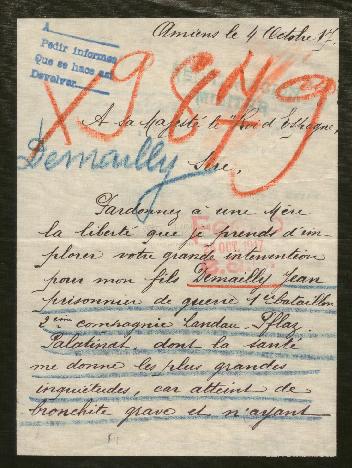 A
Pedir informes
Que se hace así
Devolver
Amiens le 4 Octobre 17
X9879
A sa Majesté le Roi d'Espagne,
Demailly
Sire,
Pardonnez à une Mère
la liberté que je prends d'im-
plorer votre grande intervention
OCT. 1917
pour mon fils Demailly Jean
prisonnier de guerie 1er bataillon
2ème compagnie Landau Pflaz
Palatinat dont la santé
me donne les plus grandes
inquiétudes, car atteint de
bronchite grave et n'ayant